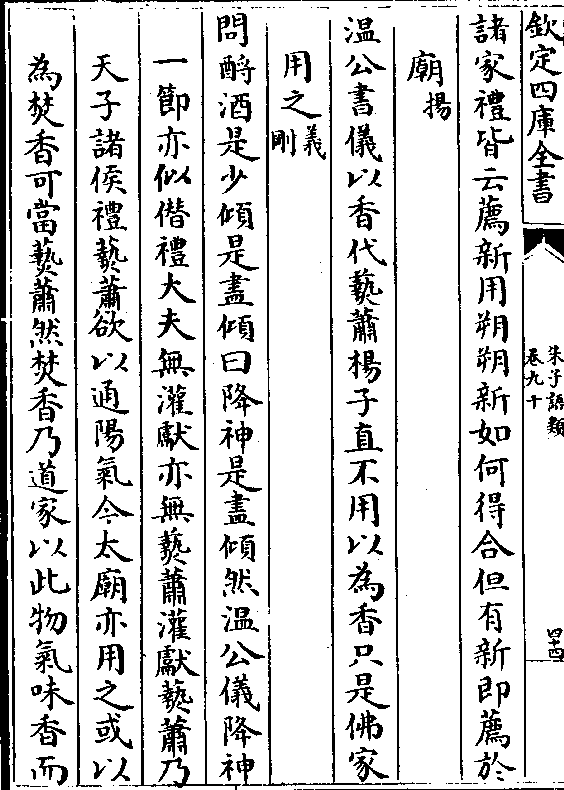 欽定四庫全書
朱子語類
卷九十
四十四
諸家禮皆云薦新用朔朔新如何得合但有新即薦於
廟揚
溫公書儀以香代爇蕭楊子直不用以為香只是佛家
用之義剛
問酹酒是少傾是盡傾曰降神是盡傾然溫公儀降神
一節亦似僭禮大夫無灌獻亦無爇蕭灌獻爇蕭乃
天子諸侯禮爇蕭欲以通陽氣今太廟亦用之或以
為焚香可當爇蕭然焚香乃道家以此物氣味香而